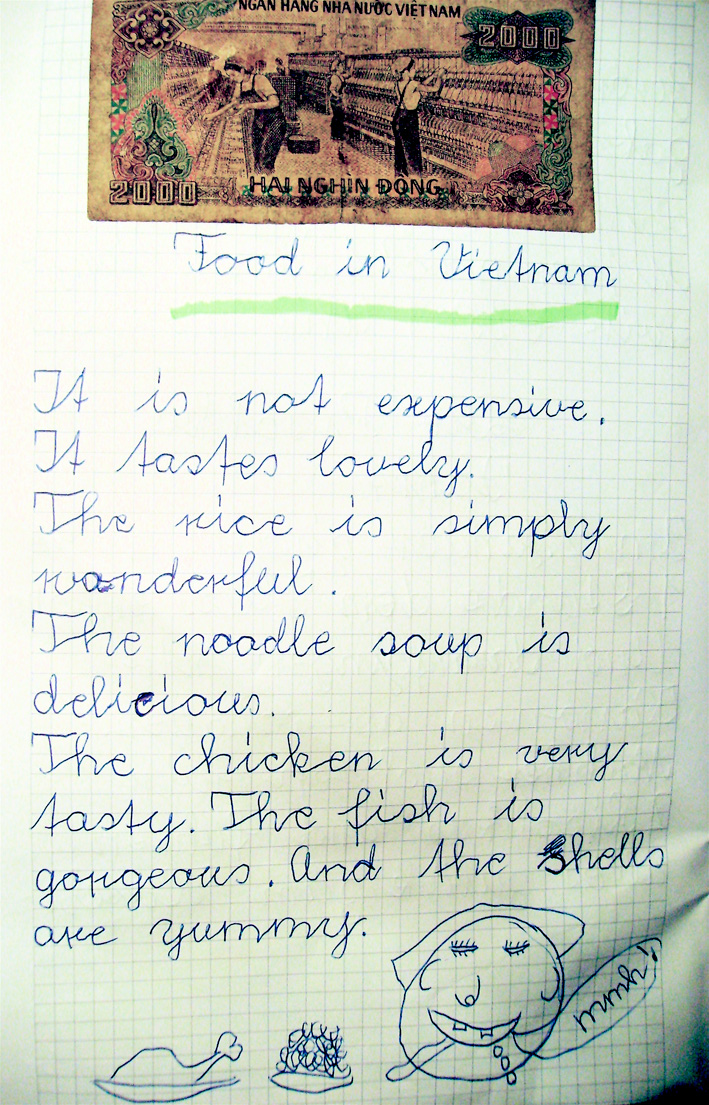 NGÂN HÀNG NHÀ NƯỚC VIỆT NAM
2000
2000
HAI NGHÌN ĐỒNG
Food in Vietnam
It is not expensive.
It tastes lovely.
The rice is simply
wonderful.
The noodle soup is
delicious.
The chicken is very
tasty. The fish is
gorgeous. And the shells
are yummy.